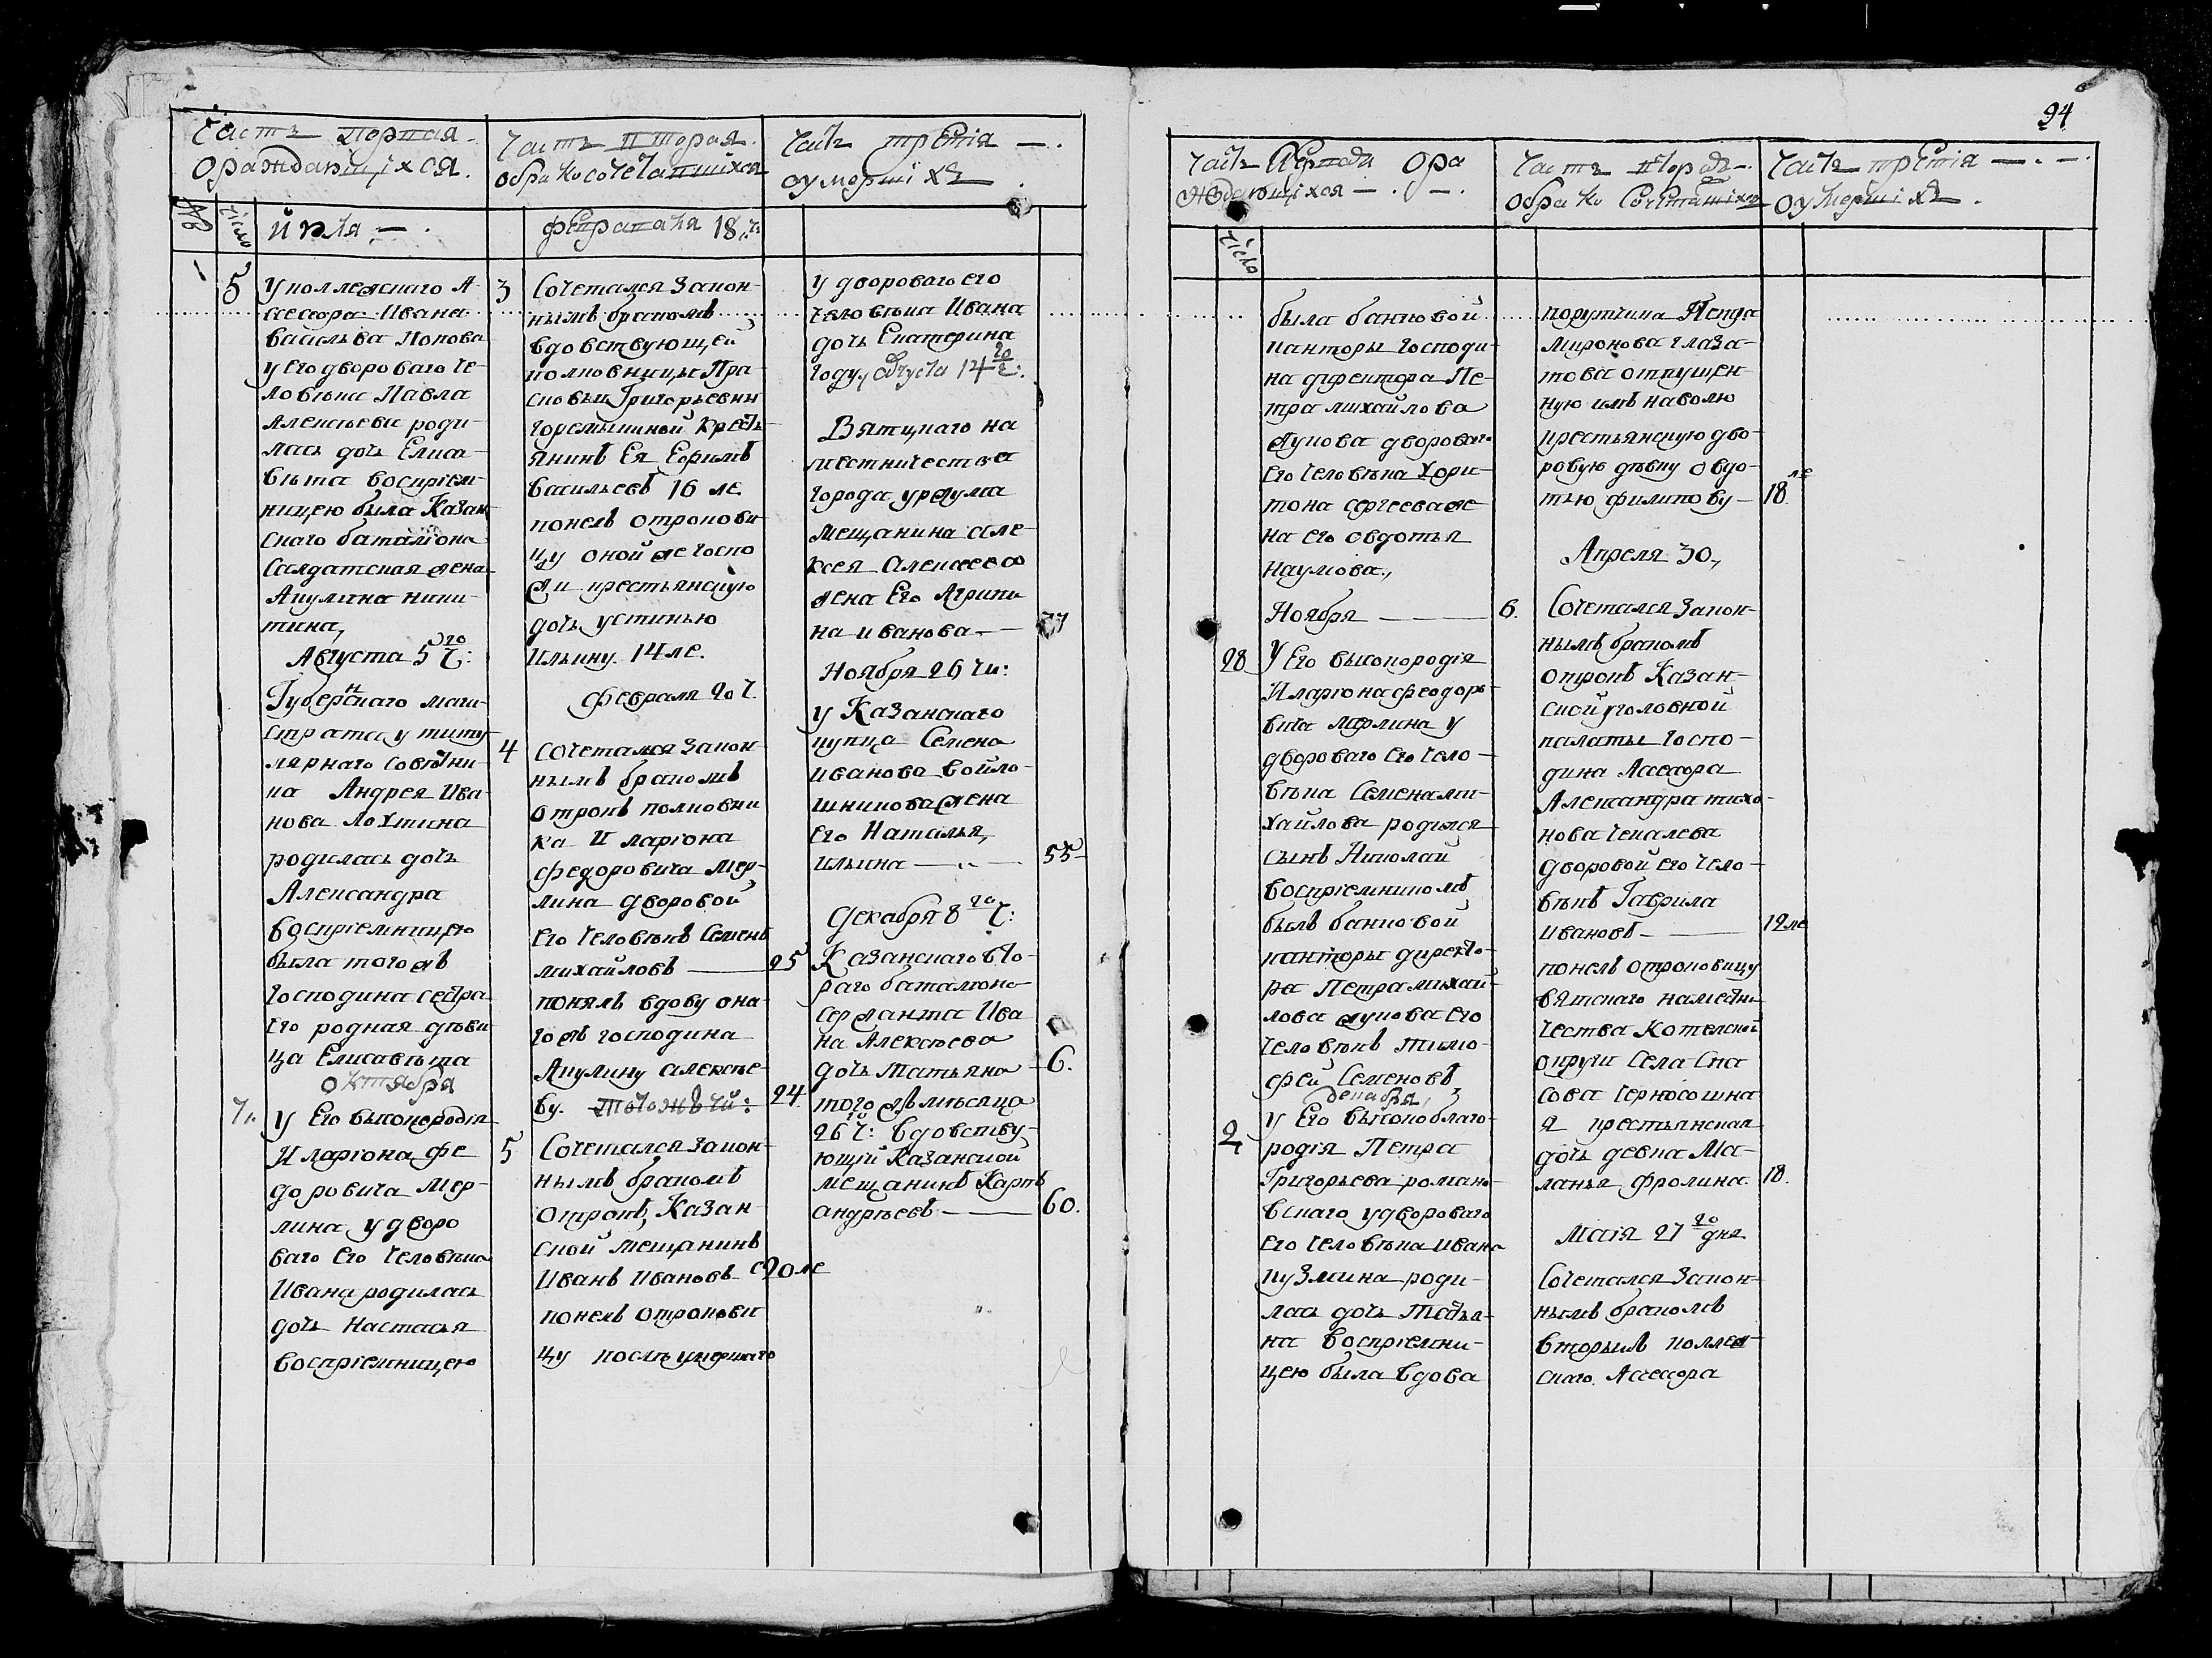 94
Часть первая
о раждающихся.
Часть вторая
о бракосочетавшихся
Часть третiя
о умершiхъ
число
июля
5
У коллежскаго А-
сессора Ивана
Васильева Попова
у его двороваго че-
ловѣка Павла
Алексѣева роди-
лась дочь Елиса-
вѣта воспрiем-
ницею была Казан
скаго баталiона
Салдатская жена
Акулина Ники-
тина,
Августа 5 го ч:
Губернскаго маги-
страта у титу-
лярнаго советни-
ка Андрея Ива-
нова Лохтина
родилась дочь
Александра
воспрiемницею
была того жъ
господина сестра
его родная дѣви
ца Елисавѣта
октября
7
У Его высокородiя
Иларiона Фе
доровича Мер-
лина у дворо
ваго его человѣка
Ивана родилась
дочь Настасья
воспрiемницею
февраля 18 ч:
3
Сочетался закон-
нымъ бракомъ
вдовствующей
полковницы Пра-
сковьи Григорьевны
крестъ-
янинъ Ея Ефимъ
Васильевъ 16 ле.
понелъ отрокови
цу оной же госпо
жи крестьянскую
дочь устинью
Ильину. 14 ле.
февраля 20 ч.
4
Сочетался закон-
нымъ бракомъ
отрокъ полковни
ка Иларiона
Федоровича Мер-
лина дворовой
его человѣкъ Семенъ
михайловъ 25
понялъ вдову она-
го жъ господина
Акулину алексѣе-
ву. тогожъ чи: 24
5
Сочетался закон-
нымъ бракомъ
отрокъ, Казан-
ской мещанинъ
Иванъ Ивановъ 20 ле
понелъ отрокови
цу послѣ умершаго
У двороваго его
человѣка Ивана
дочь Екатерина
году, августа 14 го ч:
Вятцкаго на
местничества
города уржума
мещанина але-
ксея Алексеева
жена Его Агрипи
на иванова 77
Ноября 26 чи:
у Казанскаго
купца Семена
иванова Войло-
шникова жена
его Наталья,
ильина 55
Декабря 8 го ч:
Казанскаго вто-
раго баталиона
сержанта Ива
на Алексѣева
дочь Татьяна 6.
того жъ мѣсяца
26 ч: вдовству-
ющiй Казанской
мещанинъ Карпъ
андрѣевъ 60.
Часть первая о ра
ждающiхся
Часть вторая
о бракосочетавшихся
Часть третiя
о умершiхъ
число
была банковой
канторы господи-
на директора Пе-
тра михайлова
Лунова двороваго
его человѣка Хари-
тона сергеева же-
на его овдотья
Наумова.,
Ноября
28
У Его высокородiя
Иларiона Феодоро-
вича Мерлина у
двороваго его чело-
вѣка Семена ми-
хайлова родился
сынъ Николай
воспрiемникомъ
былъ банковой
канторы директо-
ра Петра михай-
лова Лунова его
человѣкъ тимо-
фей Семеновъ
декабря,
2
У Его высокоблаго-
родiя Петра
Григорьева романо-
вскаго у двороваго
его человѣка ивана
кузмина роди-
лась дочь Татья-
на воспрiемни-
цею была вдова
порутчика
Миронова глаза-
това отпущен
ную имъ на волю
крестьянскую дво-
ровую дѣвку овдо-
тью филипову 18 ле
Апреля 30,
6.
Сочетался закон-
нымъ бракомъ
отрокъ Казан-
ской уголовной
палаты госпо-
дина Асесора
Александра тихо-
нова Чекалева
дворовой его чело-
вѣкъ Гаврила
ивановъ 19 ле
понелъ отроковицу
вятскаго наместни-
чества Котелской
округи села Спа
сова черносошна
я крестьянская
дочь девка Ма-
ланья фролина. 18.
Маiя 27 го дня
Сочетался закон-
нымъ бракомъ
вторымъ коллеж-
скаго Асессора